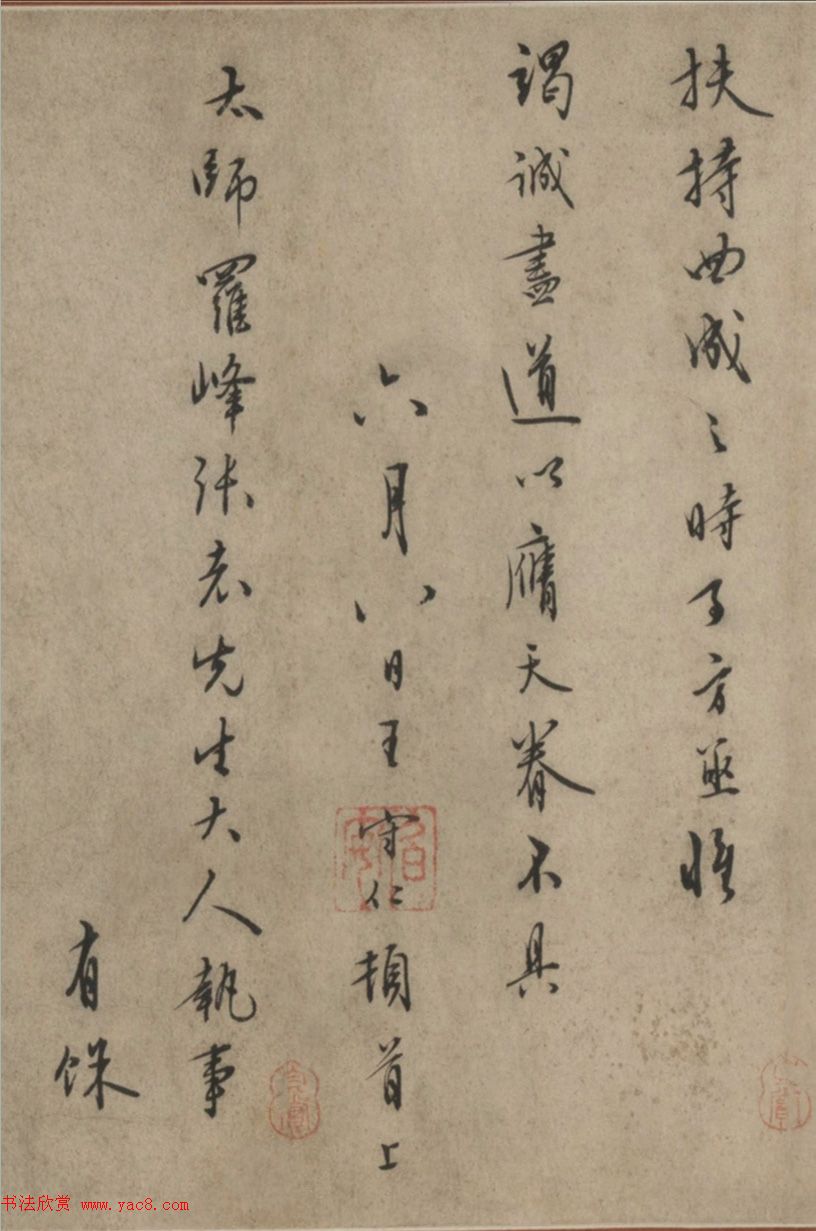 扶持曲成之時了方亟惟
竭誠盡道以膺天眷不具
六月八日王守仁頓首上
太師羅峰張老先生大人執事
有餘
书法欣赏 www.yac8.com